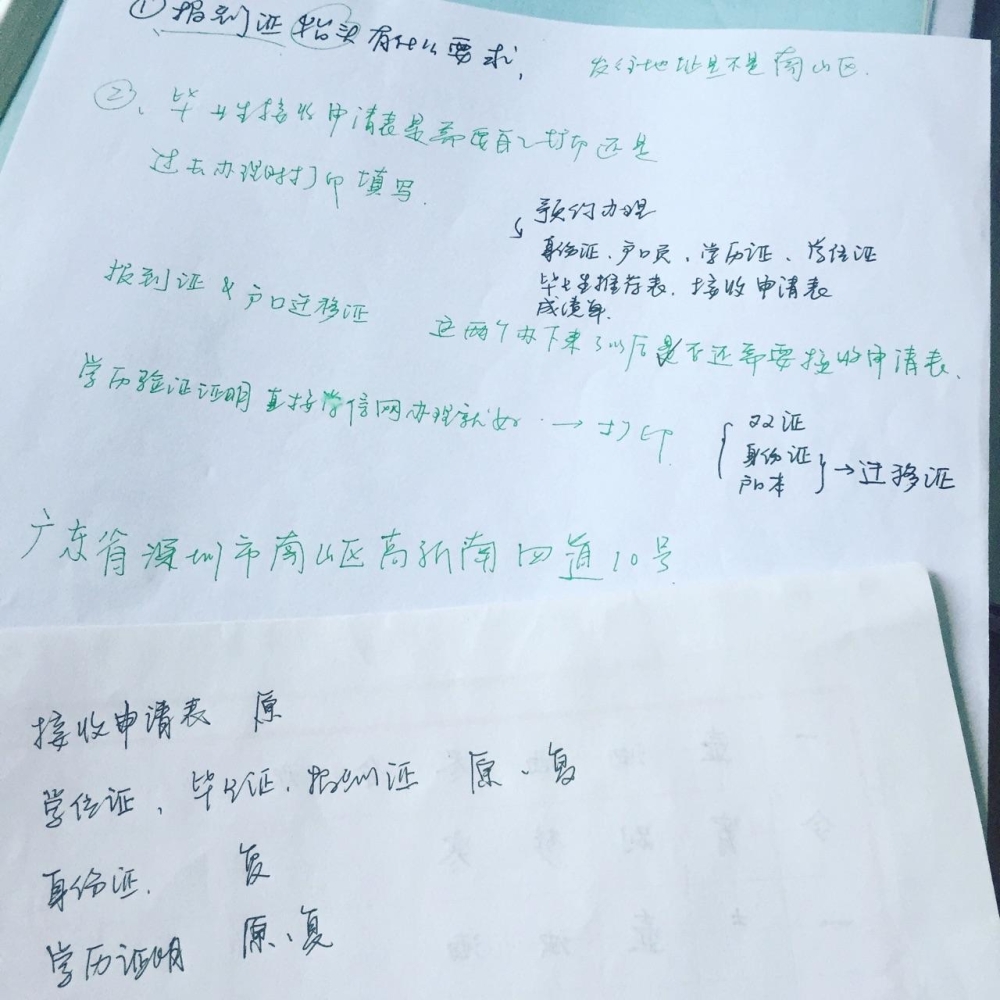 ①报到证抬头有什么要求,
发往地址是不是南山区.
②、毕业生接收申请表是需要自己打印还是
过去办理时打印填写.
预约办理
身份证、户口页、学历证、学位证
毕业生推荐表、接收申请表
成绩单.
报到证&户口迁移证
这两个办下来了以后是否还需要接收申请表.
学历验证证明直接学信网办理就好.→打印
双证
身份证
户口本
→迁移证
广东省深圳市南山区高新南四道10号
接收申请表 原
学位证、毕业证、报到证 原、复
身份证. 复
学历证明 原、复